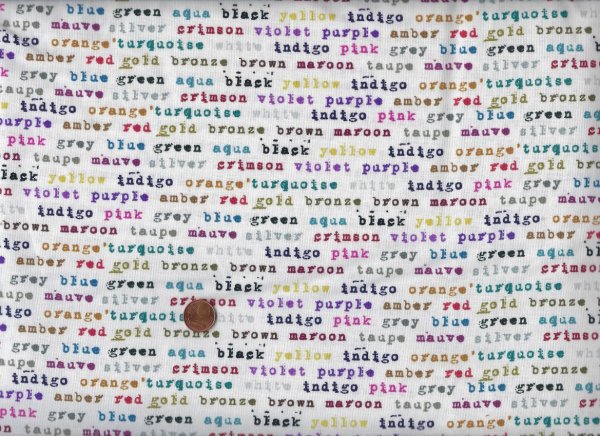 grey blue green aqua black yellow indigo orange turquoise
taupe mauve silver crimson violet purple amber red gold bronze
indigo orange turquoise white indigo pink grey blue green aqua
amber red gold bronze brown maroon taupe mauve silver
pink grey blue green aqua black yellow indigo orange turquoise white
taupe mauve silver crimson violet purple amber red gold bronze
indigo orange turquoise white indigo pink grey blue green
purple amber red gold bronze brown maroon taupe mauve silver
pink grey blue green aqua black yellow indigo orange turquoise
maroon taupe mauve silver crimson violet purple amber red gold
black yellow indigo orange turquoise white indigo pink grey
crimson violet purple amber red gold bronze brown maroon taupe
white indigo pink grey blue green aqua black yellow indigo orange
amber red gold bronze brown maroon taupe mauve silver crimson violet purple
indigo orange turquoise white indigo pink grey blue green aqua
red gold bronze brown maroon taupe mauve silver crimson
grey blue green aqua black yellow indigo orange turquoise
taupe mauve silver crimson violet purple amber red gold bronze
indigo orange turquoise white indigo pink grey blue green aqua
amber red gold bronze brown maroon taupe mauve silver
pink grey blue green aqua black yellow indigo orange turquoise
taupe mauve silver crimson violet purple amber red gold bronze
indigo orange turquoise white indigo pink grey blue green
purple amber red gold bronze brown maroon taupe mauve silver
pink grey blue green aqua black yellow indigo orange turquoise
maroon taupe mauve silver crimson violet purple amber red gold